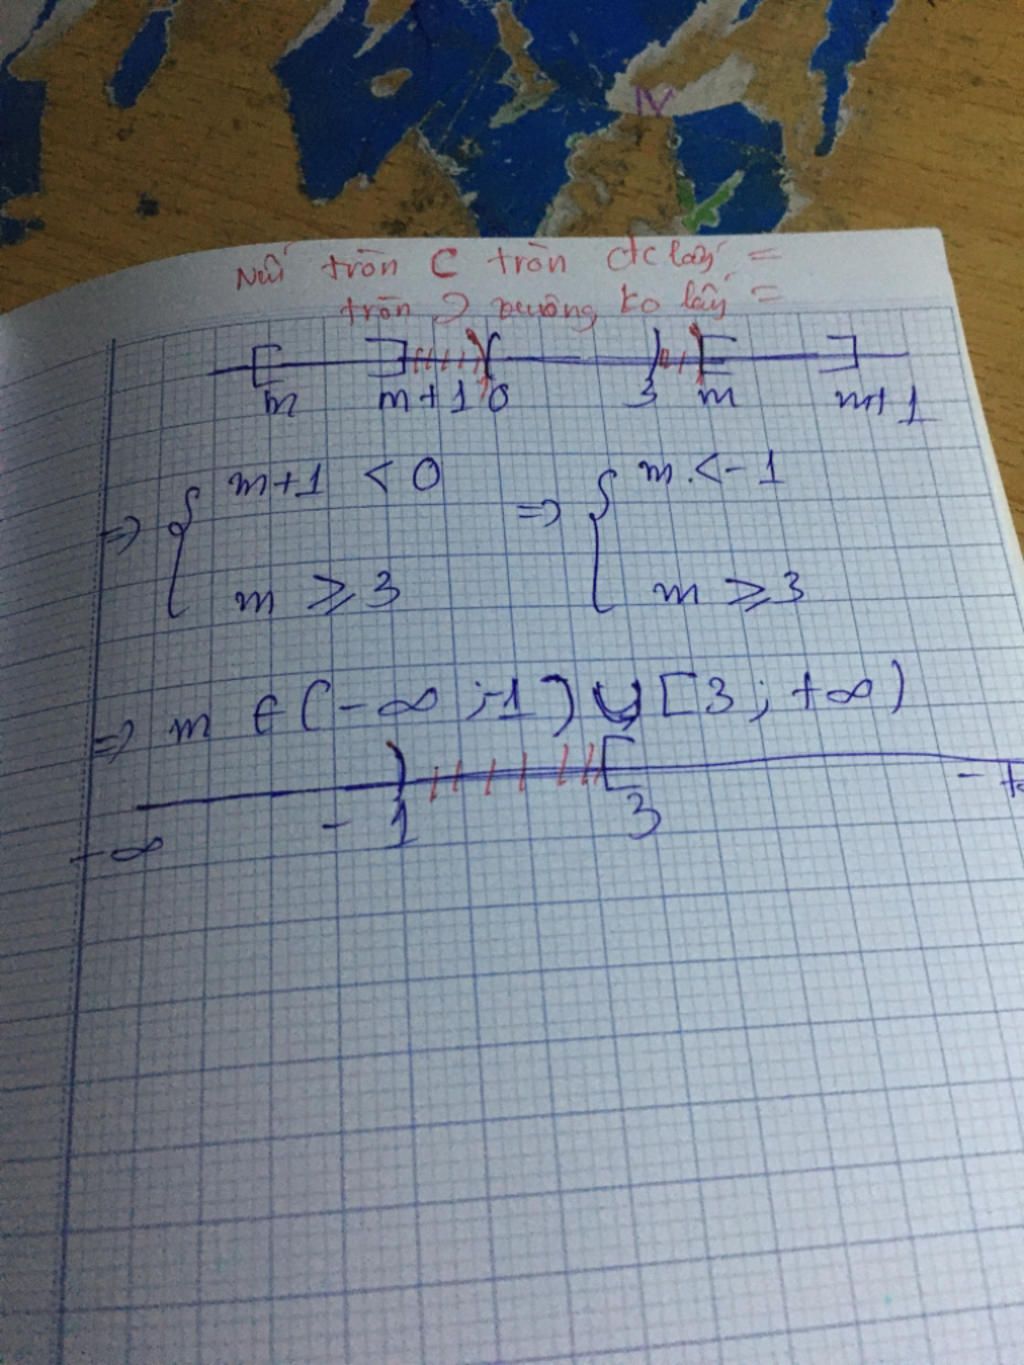 Nếu tròn C tròn đc lấy =
tròn Ↄ vuông ko lấy =
m m+1 0 3 m m+1
=> { m+1 < 0 => { m < -1
m ≥ 3 m ≥ 3
=> m ∈ (-∞ ; -1) ∪ [3 ; +∞)
-∞ -1 3